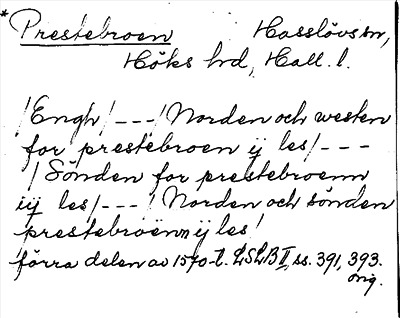 *Prestebroen Hasslövs sn,
Höks hd, Hall. l.
/Engh/---/Norden och westen
for prestebroen ij les/---
/Sönden for prestebroenn
iij les/---/Norden och sönden
prestebroënn ij les/
förra delen av 1570-t. LSLB II, ss. 391, 393.
orig.